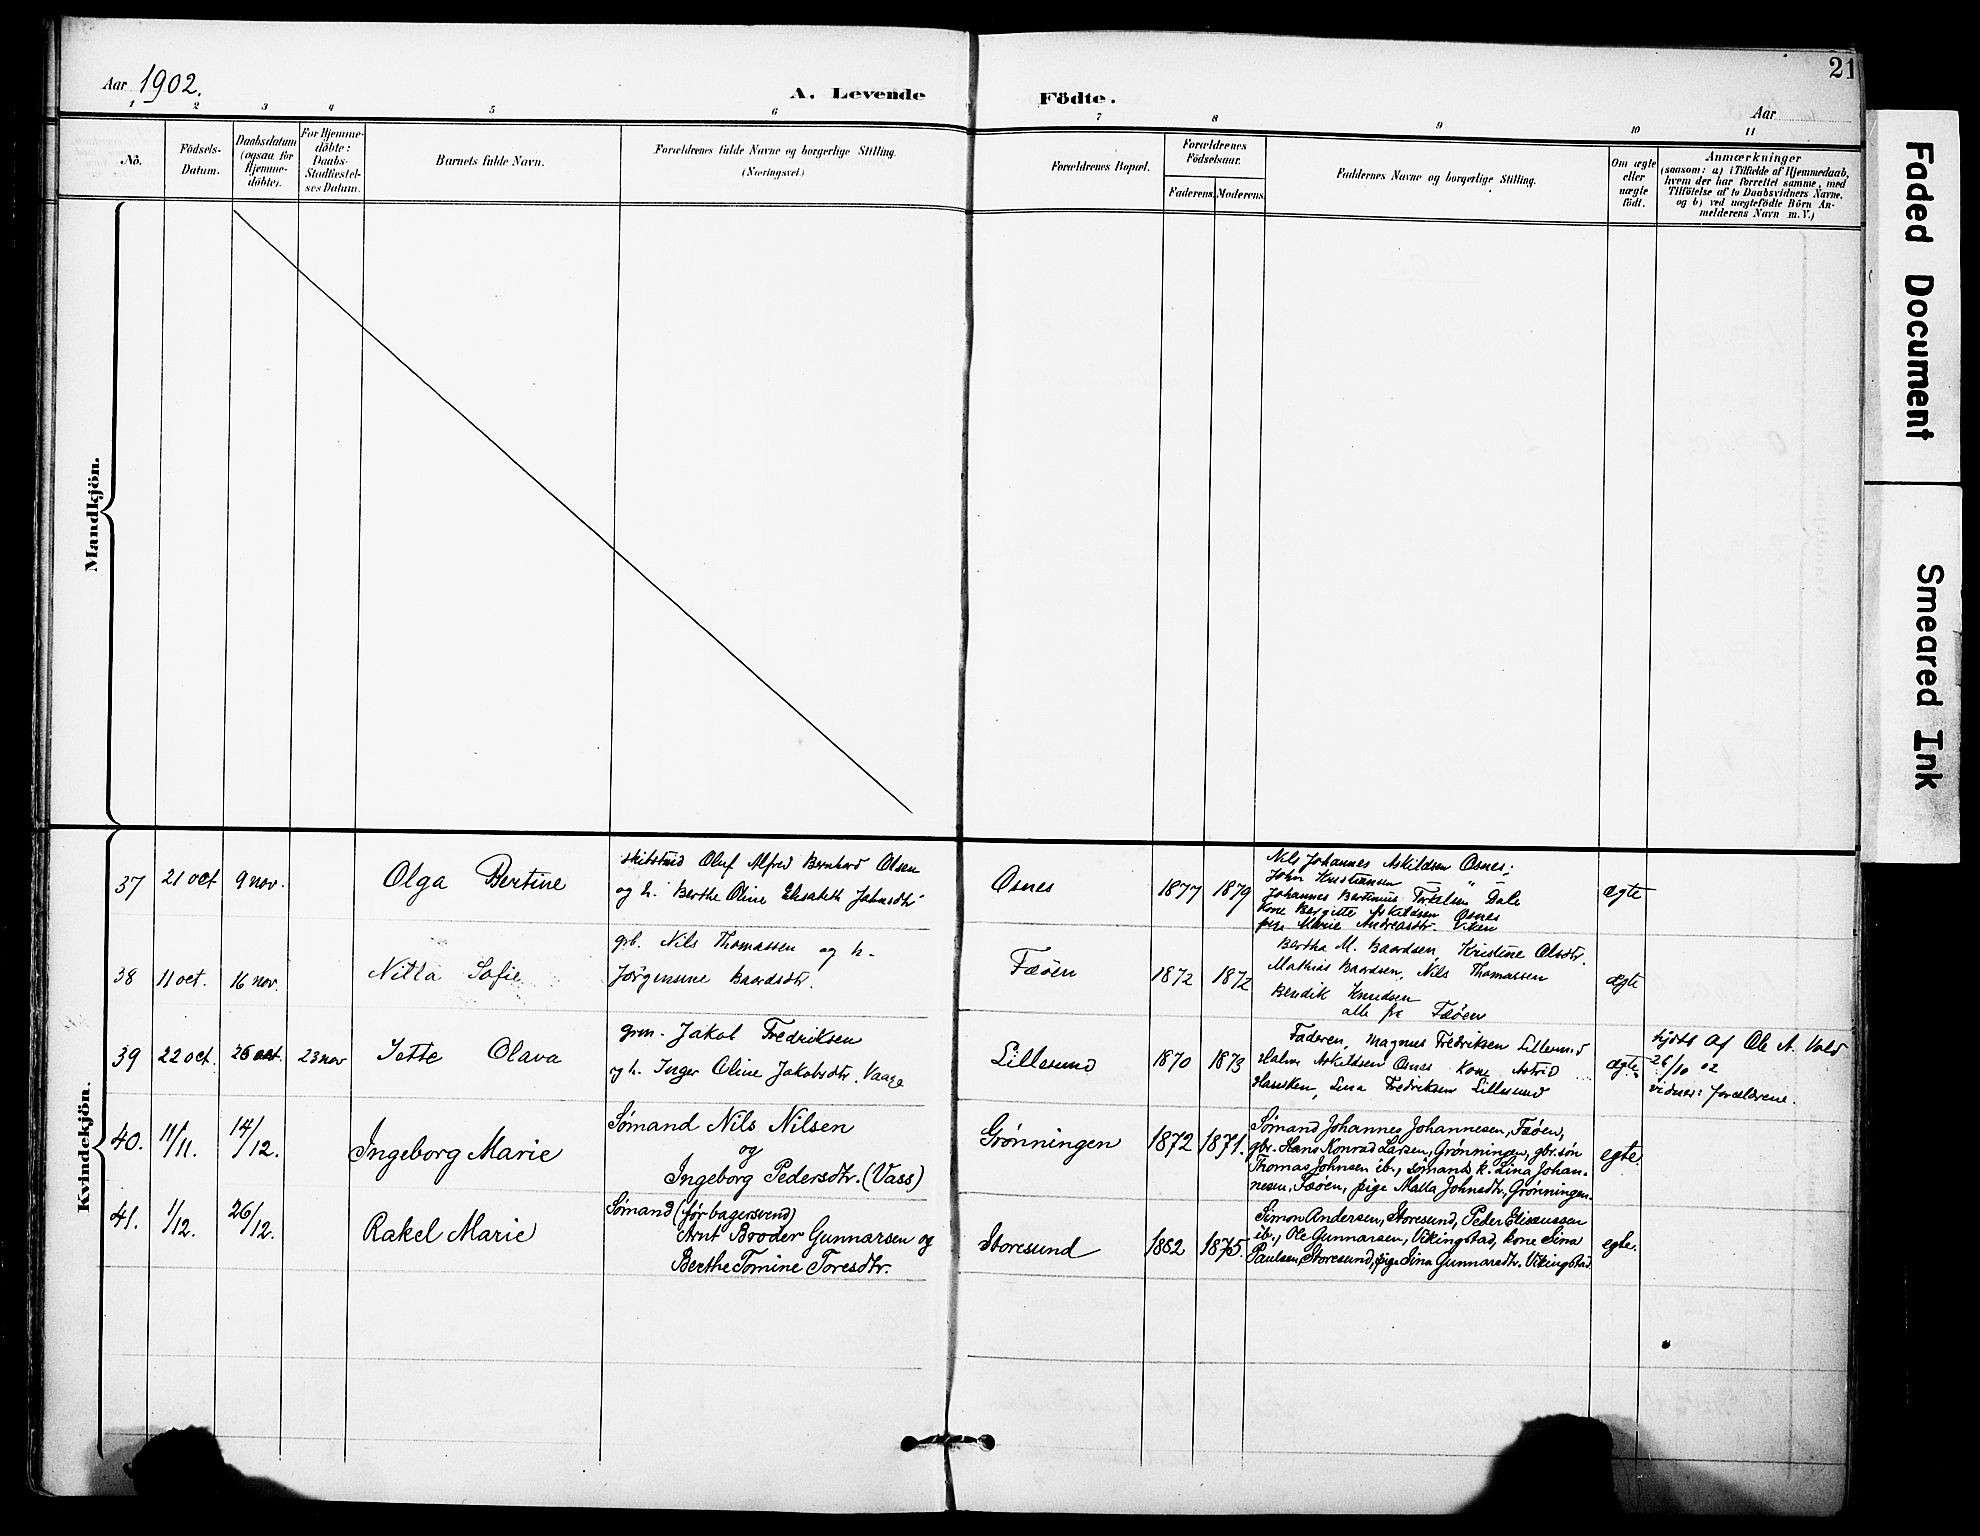 21
Aar 1902.
A. Levende Födte.
Aar
1 2 3 4 5 6 7 8 9 10 11
No.
Födsels-
Datum.
Daabsdatum
(ogsaa for
Hjemme-
döbte).
For Hjemme-
döbte:
Daabs-
Stadfæstel-
ses Datum.
Barnets fulde Navn.
Forældrenes fulde Navne og borgerlige Stilling.
(Næringsvei.)
Forældrenes Bopæl.
Forældrenes
Födselsaar.
Faderens. Moderens.
Faddernes Navne og borgerlige Stilling.
Om ægte
eller
uægte
födt.
Anmærkninger
(saasom: a) i Tilfælde af Hjemmedaab,
hvem der har forrettet samme, med
Tilföielse af to Daabsvidners Navne,
og b) ved uægtefödte Börn An-
melderens Navn m. V.)
Mandkjön.
Kvindekjön.
37 21 oct 9 nov. Olga Bertine
Oluf Alfred Bernhard Olsen
og h. Berthe Oline Elisabeth Johnsdtr
Osnes 1877 1879
Nils Johannes Askildsen Osnes;
John Kristiansen "
Johannes Bertinius Torkelsen Dale
Kone Bergitte Askildsen Osnes
pige Marie Andreasdtr. Viken
ægte
38 11 oct. 16 nov. Nilla Sofie
grb. Nils Thomassen og h.
Jörgensine Baardsdtr.
Fæøen 1872 1872
Bertha M. Baardsen, Kristine Olsdtr.
Mathias Baardsen, Nils Thomassen
Bendik Knudsen
alle fra Fæøen
ægte
39 22 oct. 26 oct. 23 nov Jette Olava
grm. Jakob Fredriksen
og h. Inger Oline Jakobsdtr. Vaage
Lillesund 1870 1873
Faderen, Magnus Fredriksen Lillesund
Askildsen Osnes Kone Astrid
Hasseken, Lina Fredriksen Lillesund
ægte
hjdbt af Ole A. Vold
26/10 02
vidner: forældrene.
40. 11/11. 14/12. Ingeborg Marie
Sømand Nils Nilsen
og
Ingeborg Pedersdtr. (Vass)
Grønningen 1872 1871.
Sømand Johannes Johannesen, Fæøen,
gbr. Hans Konrad Larsen, Grønningen, gbr.søn
Thomas Johnsen ib., sømands k. Lina Johan-
nesen, Fæøen, pige Malla Johnsdtr, Grønningen.
egte.
41. 1/12. 26/12. Rakel Marie
Sømand (før bagersvend)
Arnt Broder Gunnarsen og
Berthe Tomine Toresdtr.
Storesund 1882 1875.
Simon Andersen, Storesund, Peder Elisæussen
ib., Ole Gunnarsen, Vikingstad, kone Sina
Paulsen, Storesund, pige Sina Gunnarsdtr. Vikingstad.
egte.
Faded Document
Smeared Ink